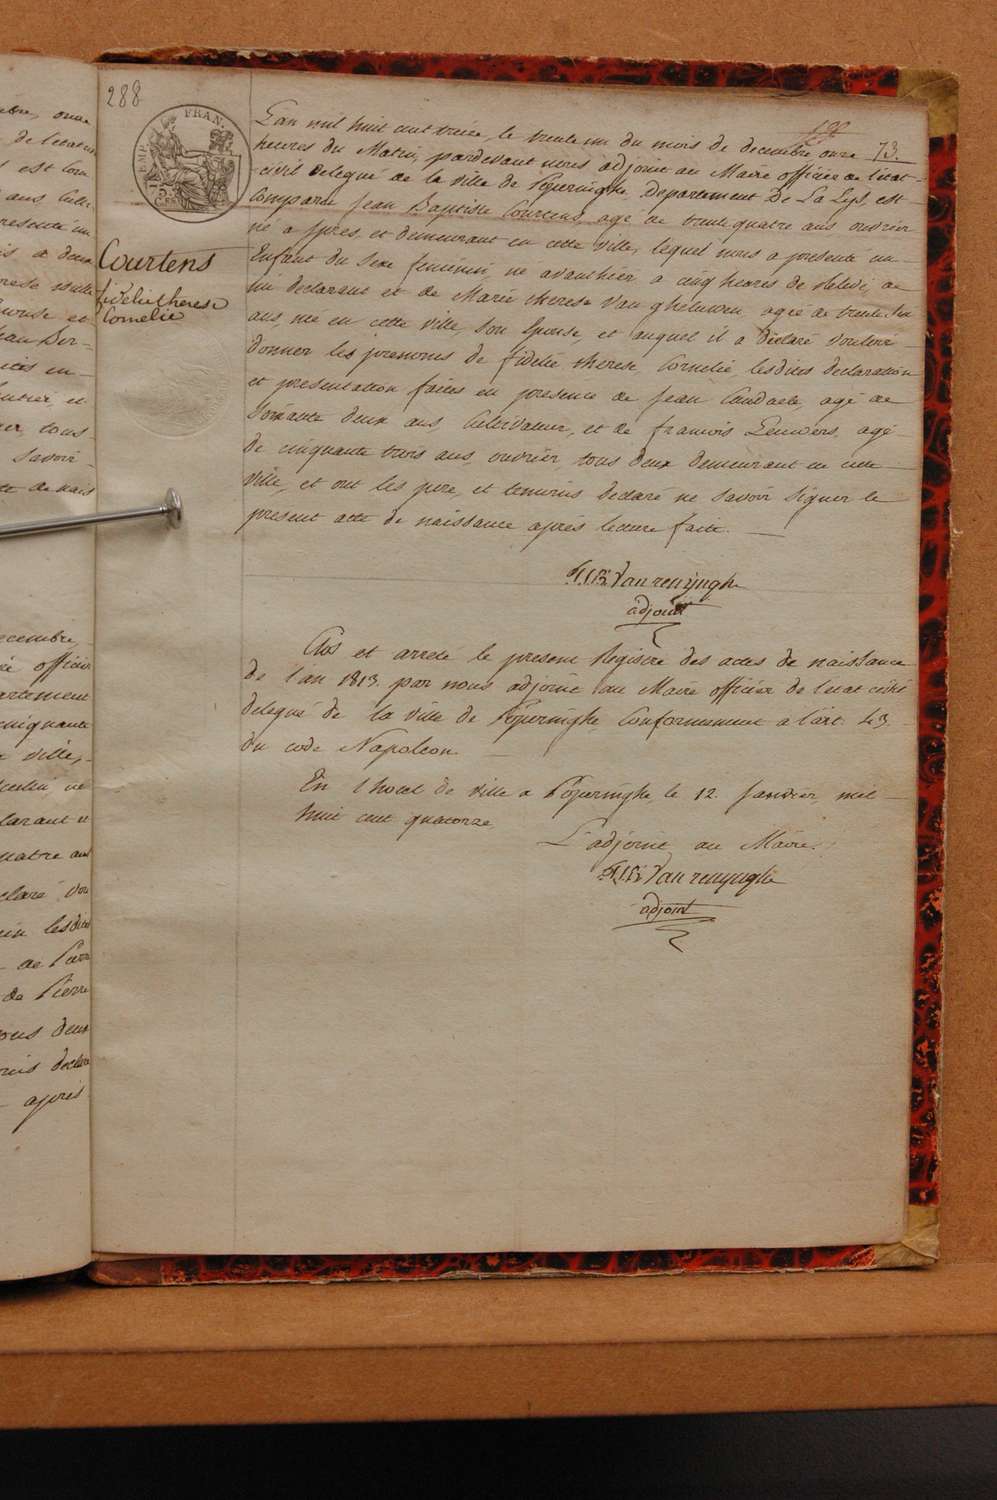 288
EMP. FRAN.
199
73.
L'an mil huit cent treize, le trente un du mois de decembre onze
heures du Matin, pardevant nous adjoint au Maire officier de l'etat-
civil delegué de la ville de Poperinghe, Departement De La Lys, est
Comparu Jean Baptiste Courtens, agé de trente quatre ans ouvrier
né a Ypres, et demeurant en cette ville, lequel nous a presenté un
Enfant du Sexe feminin né avanthier a cinq heures de relevé, de
lui declarant et de Marie therese Van gheluwen, agée de trente six
ans, née en cette ville, son Epouse, et auquel il a déclaré vouloir
donner les prenoms de fidélie therese, Cornelie, lesdites declaration
et presentation faites en presence de Jean Candaele, agé de
Soixante deux ans, Cultivateur, et de francois Leuwers, agé
de cinquante trois ans, ouvrier, tous deux demeurant en cette
ville, et ont les pere, et temoins declaré ne savoir signer le
present acte de naissance après lecture faite.
Courtens
fidelie therese
Cornelie
Van renynghe
adjoint
Clos et arreté le present Registre des actes de naissance
de l'an 1813. par nous adjoint au Maire officier de l'etat civil
delegué de la ville de Poperinghe, Conformement a l'art. 43.
du code Napoleon.
En l'hotel de ville a Poperinghe, le 12. Janvier, mil
huit cent quatorze,
L'adjoint au Maire.
Van renynghe
adjoint